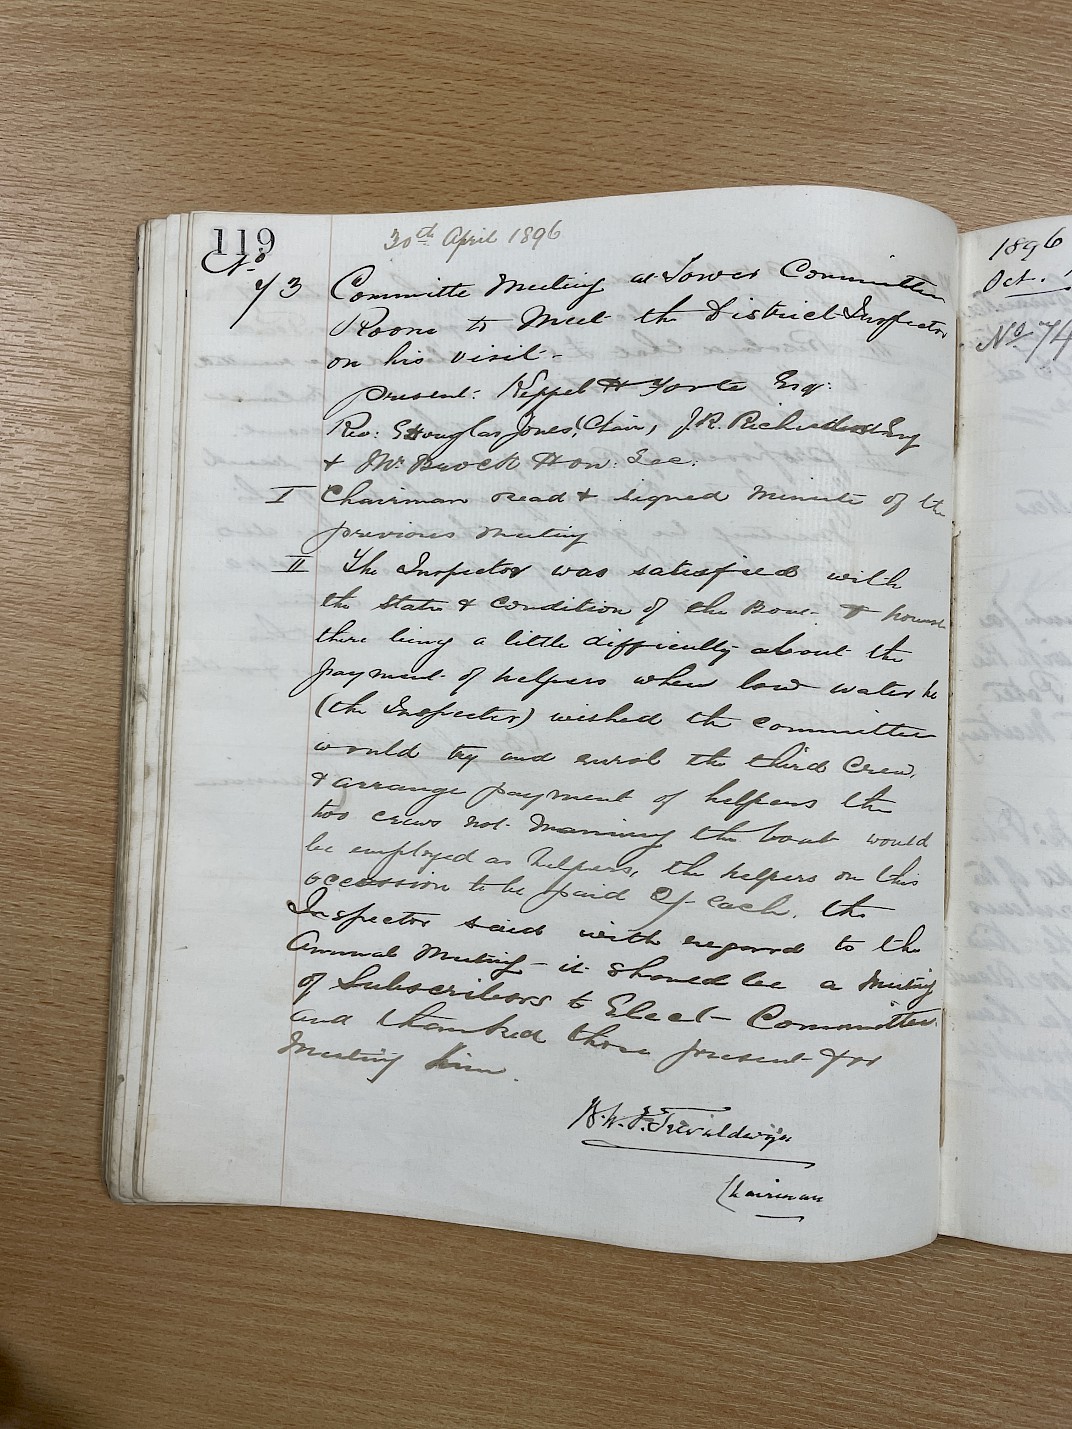 119
30th April 1896
No
73 Committe Meeting at Tower Committee
Room to Meet the District Inspector
on his visit -
present: Keppel H Forte Esq:
Rev: Douglas Jones, Chair, J.R. Richardson Esq
& Mr. Brock Hon: Sec:
I Chairman read & signed Minute of the
previous Meeting
II The Inspector was satisfied with
the State & Condition of the Boat &
there being a little difficulty about the
payment of helpers when low water he
(the Inspector) wished the committee
would try and enrol the third Crew,
& arrange payment of helpers the
two crews not Manning the boat would
be employed as helpers, the helpers on this
occassion to be paid 2/- each. the
Inspector said with regard to the
Annual Meeting - it should be a Meeting
of Subscribers to Elect - Committee
and thanked those present for
Meeting him.
Chairman
1896
Oct.
No 74